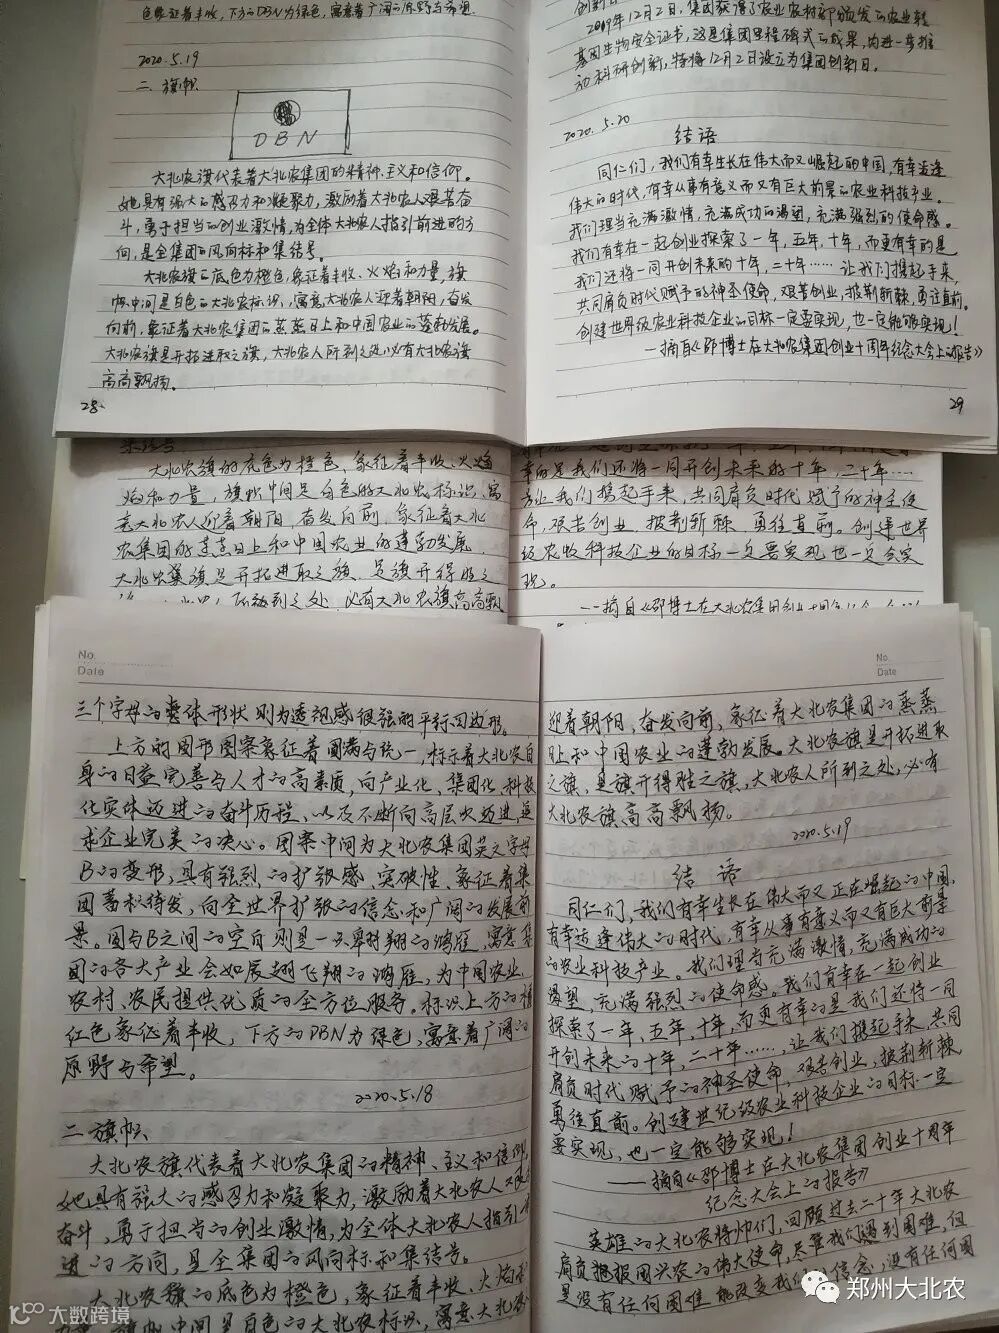 色象征着丰收,下方的DBN为绿色,寓意着广阔的原野与希望.
2020.5.19
二、旗帜
DBN
大北农旗代表着大北农集团的精神、主义和信仰。
她具有强大的感召力和凝聚力,激励着大北农人艰苦奋
斗,勇于担当的创业激情,为全体大北农人指引前进的方
向,是全集团的风向标和集结号。
大北农旗的底色为橙色,象征着丰收、火焰和力量,旗
帜中间是白色的大北农标识,寓意大北农人迎着朝阳,奋发
向前,象征着大北农集团的蒸蒸日上和中国农业的蓬勃发展。
大北农旗是开拓进取之旗,大北农人所到之处,必有大北农旗
高高飘扬。
28.
2019年12月2日,集团获得了农业农村部颁发的农业转
基因生物安全证书,这是集团里程碑式的成果,为进一步推
动科研创新,特将12月2日设立为集团创新日。
2020.5.20
结语
同仁们,我们有幸生长在伟大而又崛起的中国,有幸运逢
伟大的时代,有幸从事有意义而又有巨大前景的农业科技产业。
我们理当充满激情,充满成功的渴望,充满强烈的使命感。
我们有幸在一起创业探索了一年,五年,十年,而更有幸的是
我们还将一同开创未来的十年,二十年……让我们携起手来,
共同肩负时代赋予的神圣使命,艰苦创业,披荆斩棘,勇往直前。
创建世界级农业科技企业的目标一定要实现,也一定能够实现!
—摘自《邵博士在大北农集团创业十周年纪念大会上的报告》
29
集结号
大北农旗的底色为橙色,象征着丰收、火焰
焰和力量,旗帜中间是白色的大北农标识,寓
意大北农人迎着朝阳,奋发向前,象征着大北
农集团的蒸蒸日上和中国农业的蓬勃发展.
大北农集旗是开拓进取之旗,是旗开得胜之
所到之处,必有大北农旗高高飘
幸的是我们还将一同开创未来的十年,二十年……
让我们携起手来,共同肩负时代赋予的神圣使
命,艰苦创业,披荆斩棘,勇往直前。创建世界
级农业科技企业的目标一定要实现也一定会实
现。
--摘自《邵博士在大北农集团创业十周年
No.
Date
三个字母的整体形状则为透视感很强的平行四边形。
上方的圆形图案象征着圆满与统一,标示着大北农自
身的日益完善与人才的高素质,向产业化、集团化、科技
化实体迈进的奋斗历程、以及不断向高层次迈进,追
求企业完美的决心。图案中间为大北农集团英文字母
B的变形,具有强烈的扩张感、突破性、象征着集
团蓄积待发,向全世界扩张的信念和广阔的发展前
景。圆与B之间的空白则是一只翱翔的鸿雁,寓意集
团的各大产业会如展翅飞翔的鸿雁,为中国农业、
农村、农民提供优质的全方位服务。标识上方的橙
红色象征着丰收,下方的DBN为绿色,寓意着广阔的
原野与希望。
2020.5.18
二、旗帜
大北农旗代表着大北农集团的精神、主义和信仰,
她具有强大的感召力和凝聚力,激励着大北农人艰苦
奋斗,勇于担当的创业激情,为全体大北农人指引前
进的方向,是全集团的风向标和集结号。
大北农旗的底色为橙色,象征着丰收、火焰和
旗帜中间是白色的大北农标识,寓意大北农
No.
Date
迎着朝阳,奋发向前,象征着大北农集团的蒸蒸
日上和中国农业的蓬勃发展。大北农旗是开拓进取
之旗,是旗开得胜之旗,大北农人所到之处,必有
大北农旗高高飘扬。
2020.5.19
结语
同仁们,我们有幸生长在伟大而又正在崛起的中国,
有幸运逢伟大的时代,有幸从事有意义而又有巨大前景
的农业科技产业。我们理当充满激情,充满成功的
渴望,充满强烈的使命感。我们有幸在一起创业
探索了一年,五年,十年,而更有幸的是我们还将一同
开创未来的十年,二十年……,让我们携起手来,共同
肩负时代赋予的神圣使命,艰苦创业,披荆斩棘,
勇往直前。创建世纪级农业科技企业的目标一定
要实现,也一定能够实现!
——摘自《邵博士在大北农集团创业十周年
纪念大会上的报告》
英雄的大北农将帅们,回顾过去二十年大北农
肩负报国兴农的伟大使命,尽管我们遇到困难,但
是没有任何困难能改变我们的信念,没有任何困
郑州大北农
大数跨境